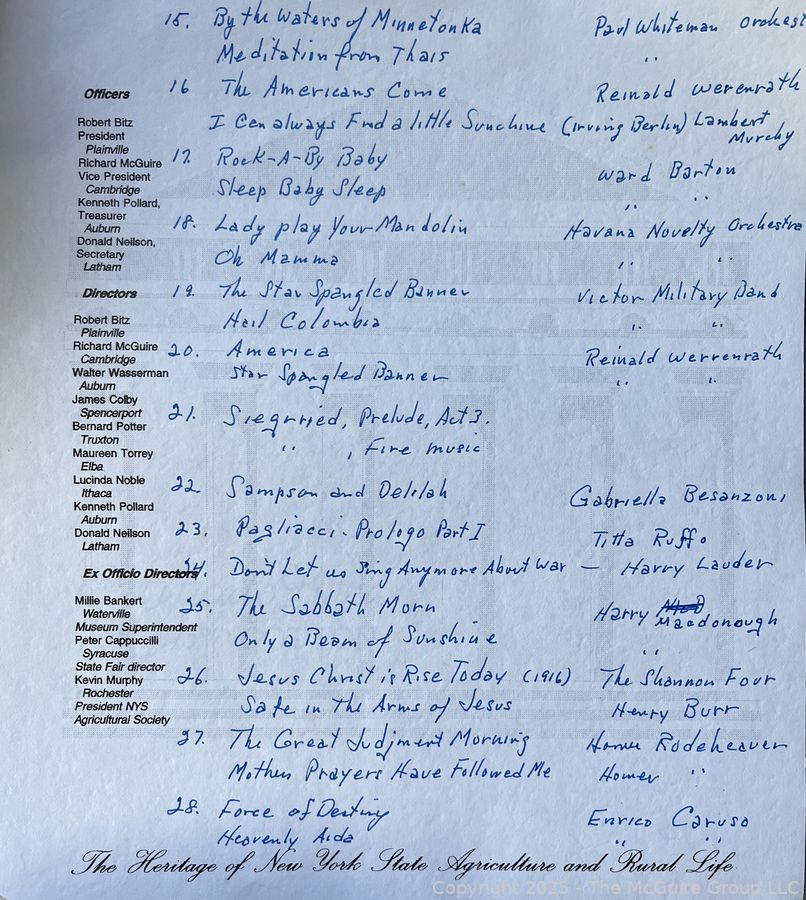 15. By the Waters of Minnetonka Paul Whiteman Orchest
Meditation from Thais " 
16 The Americans Come Reinald Werenrath
I Can always Find a little Sunchine (Irving Berlin) Lambert
Murphy
17. Rock-A-By Baby Ward Barton
Sleep Baby Sleep " "
18. Lady play Your Mandolin Havana Novelty Orchestra
Oh Mamma " "
19. The Star Spangled Banner Victor Military Band
Hail Colombia " "
20. America Reinald Werrenrath
Star Spangled Banner " "
21. Siegrried, Prelude, Act 3.
" , Fire music
22. Sampson and Delilah Gabriella Besanzoni
23. Pagliacci - Prologo Part I Titta Ruffo
24. Don't Let us Sing Anymore About War — Harry Lauder
25. The Sabbath Morn Harry Macdonough
Only a Beam of Sunshine " 
26. Jesus Christ is Rise Today (1916) The Shannon Four
Safe in the Arms of Jesus Henry Burr
27. The Great Judgment Morning Homer Rodeheaver
Mothers Prayers Have Followed Me Homer "
28. Force of Destiny Enrico Caruso
Heavenly Aida " "
Officers
Robert Bitz
President
Plainville
Richard McGuire
Vice President
Cambridge
Kenneth Pollard,
Treasurer
Auburn
Donald Neilson,
Secretary
Latham
Directors
Robert Bitz
Plainville
Richard McGuire
Cambridge
Walter Wasserman
Auburn
James Colby
Spencerport
Bernard Potter
Truxton
Maureen Torrey
Elba
Lucinda Noble
Ithaca
Kenneth Pollard
Auburn
Donald Neilson
Latham
Ex Officio Directors
Millie Bankert
Waterville
Museum Superintendent
Peter Cappuccilli
Syracuse
State Fair director
Kevin Murphy
Rochester
President NYS
Agricultural Society
The Heritage of New York State Agriculture and Rural Life
Copyright 2025 - The McGuire Group LLC